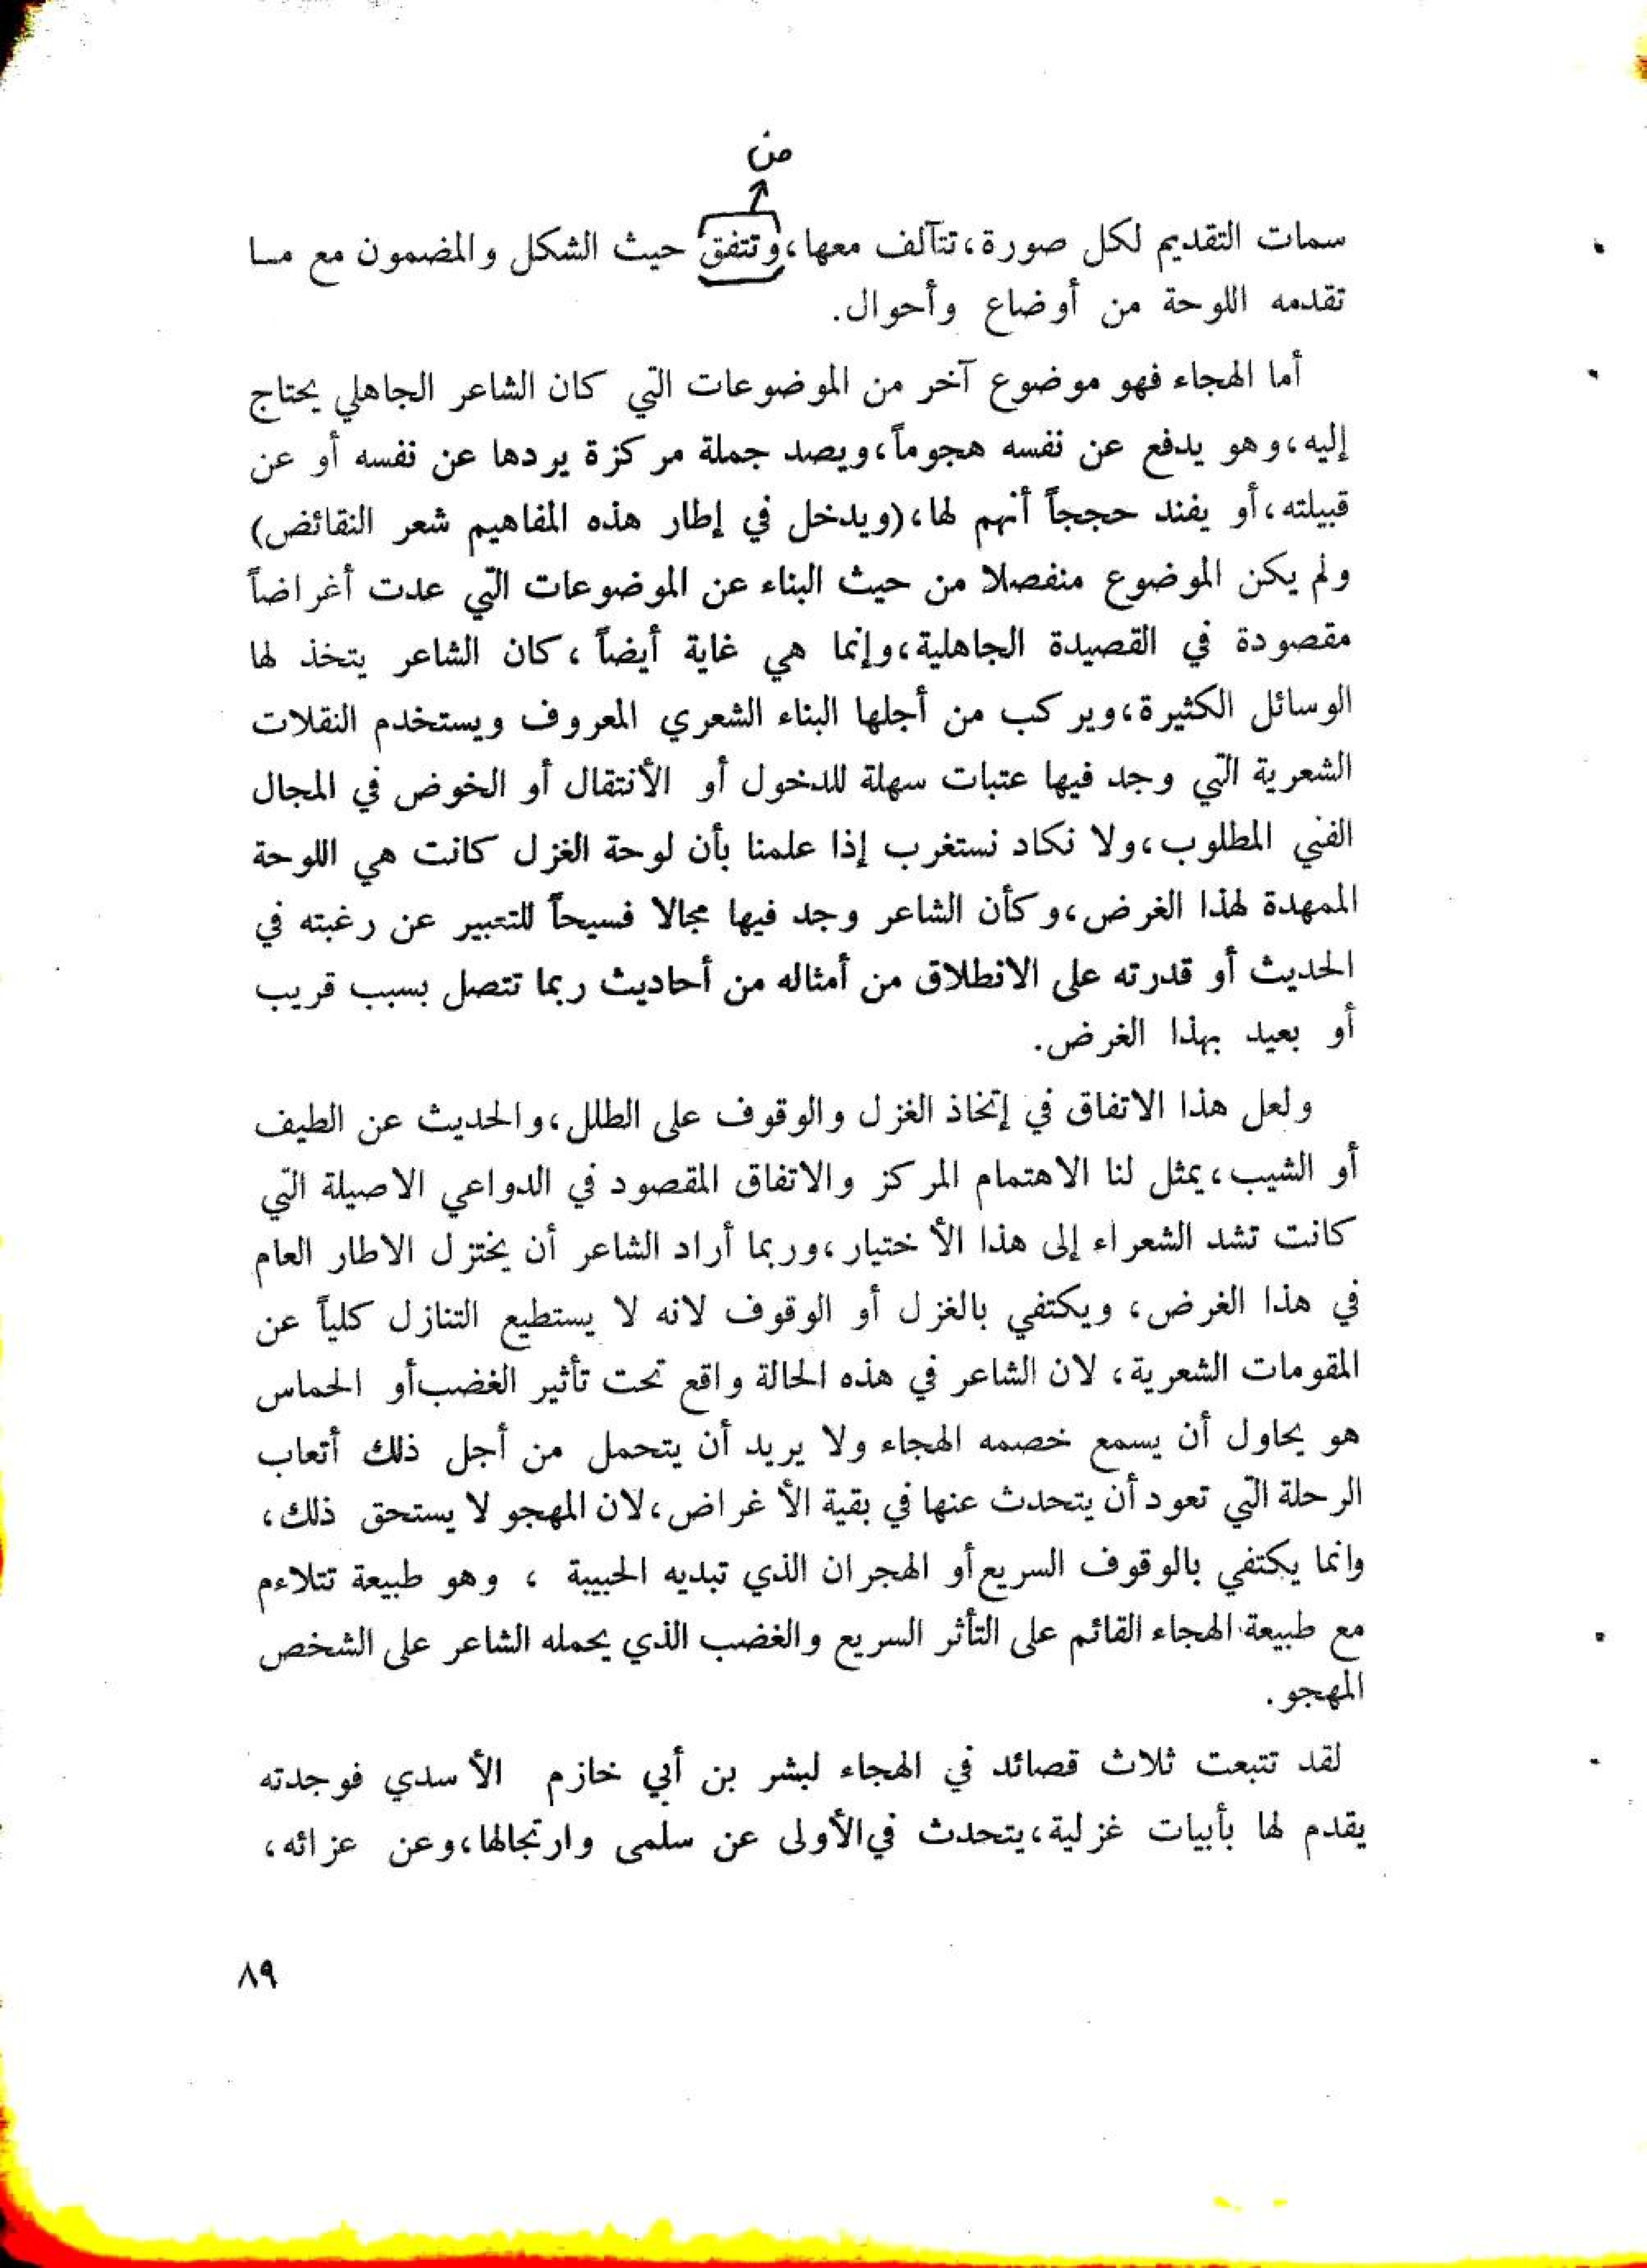 من
سمات التقديم لكل صورة، تتآلف معها، وتتفق حيث الشكل والمضمون مع مــا
تقدمه اللوحة من أوضاع وأحوال.
أما الهجاء فهو موضوع آخر من الموضوعات التي كان الشاعر الجاهلي يحتاج
إليه، وهو يدفع عن نفسه هجوماً، ويصد جملة مركزة يردها عن نفسه أو عن
قبيلته، أو يفند حججاً أنهم لها، (ويدخل في إطار هذه المفاهيم شعر النقائض)
ولم يكن الموضوع منفصلا من حيث البناء عن الموضوعات التي عدت أغراضاً
مقصودة في القصيدة الجاهلية، وإنما هي غاية أيضاً، كان الشاعر يتخذ لها
الوسائل الكثيرة، ويركب من أجلها البناء الشعري المعروف ويستخدم النقلات
الشعرية التي وجد فيها عتبات سهلة للدخول أو الأنتقال أو الخوض في المجال
الفني المطلوب، ولا نكاد نستغرب إذا علمنا بأن لوحة الغزل كانت هي اللوحة
الممهدة لهذا الغرض، وكأن الشاعر وجد فيها مجالا فسيحاً للتعبير عن رغبته في
الحديث أو قدرته على الانطلاق من أمثاله من أحاديث ربما تتصل بسبب قريب
أو بعيد بهذا الغرض.
ولعل هذا الاتفاق في إتخاذ الغزل والوقوف على الطلل، والحديث عن الطيف
أو الشيب، يمثل لنا الاهتمام المركز والاتفاق المقصود في الدواعي الاصيلة التي
كانت تشد الشعراء إلى هذا الأختيار، وربما أراد الشاعر أن يختزل الاطار العام
في هذا الغرض، ويكتفي بالغزل أو الوقوف لانه لا يستطيع التنازل كلياً عن
المقومات الشعرية، لان الشاعر في هذه الحالة واقع تحت تأثير الغضب أو الحماس
هو يحاول أن يسمع خصمه الهجاء ولا يريد أن يتحمل من أجل ذلك أتعاب
الرحلة التي تعود أن يتحدث عنها في بقية الأغراض، لان المهجو لا يستحق ذلك،
وانما يكتفي بالوقوف السريع أو الهجران الذي تبديه الحبيبة ، وهو طبيعة تتلاءم
مع طبيعة الهجاء القائم على التأثر السريع والغضب الذي يحمله الشاعر على الشخص
المهجو.
لقد تتبعت ثلاث قصائد في الهجاء لبشر بن أبي خازم الأسدي فوجدته
يقدم لها بأبيات غزلية، يتحدث في الأولى عن سلمى وارتجالها، وعن عزائه،
٨٩